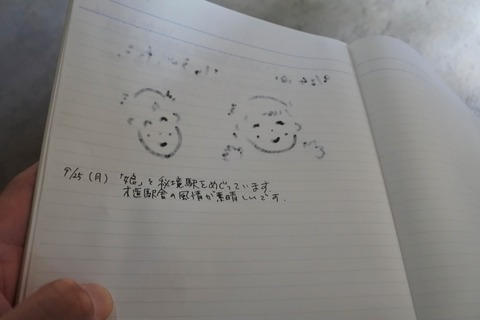 9/25 (月) 「娘」と秘境駅をめぐっています
木造駅舎の風情が素晴しいです.